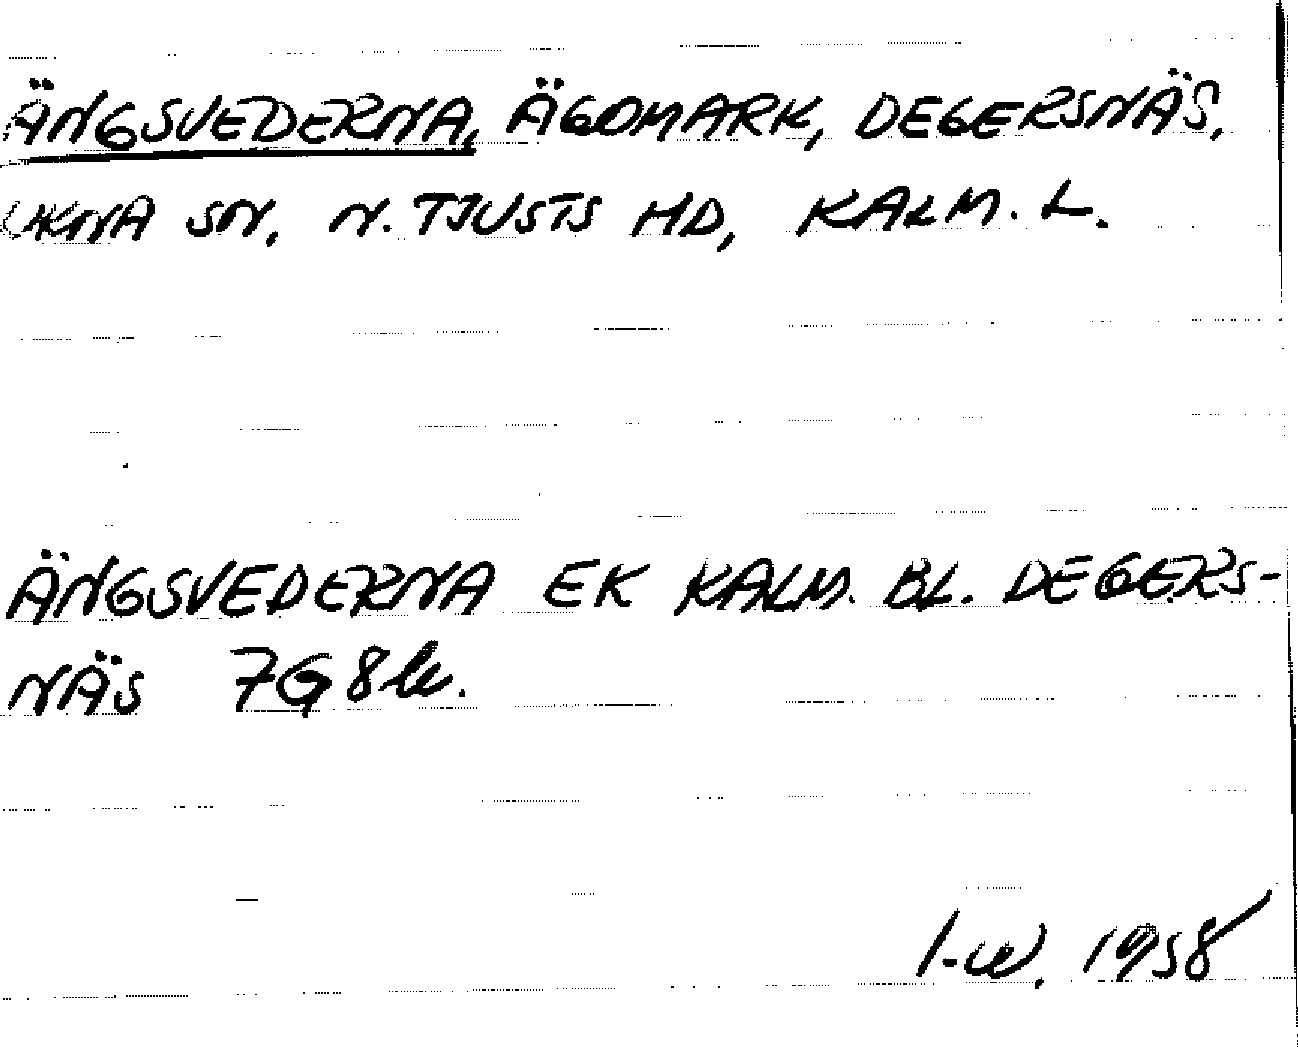 ÄNGSVEDERNA, ÄGOMARK, DEGERSNÄS,
UKNA SN, N. TJUSTS HD, KALM. L.
ÄNGSVEDERNA EK KALM. BL. DEGERS-
NÄS 7G8
1958